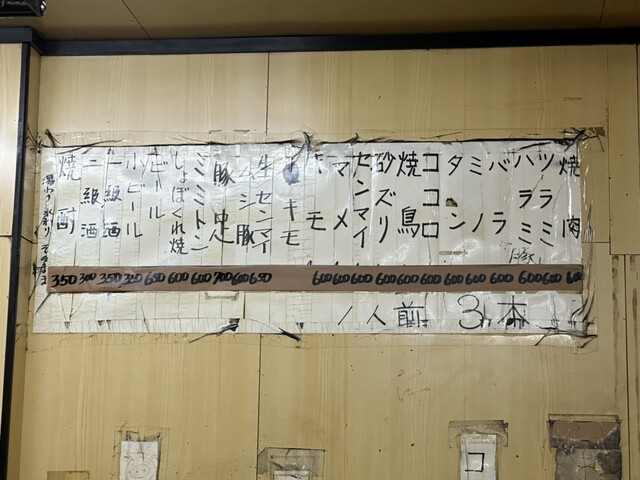 焼肉 600
ツラミ 600
ハラミ 600
バラ 600
ミノ 600
タン 600
ココロ 600
焼鳥 600
砂ズリ 600
センマイ 600
マメ 600
キモ 600
キモ
生センマイ 650
ムシ豚 600
豚足 700
ミミトン 600
しょぼくれ焼 600
ビール 650
小ビール 350
一級酒 350
二級酒 300
焼酎 350
1人前 3本
コ